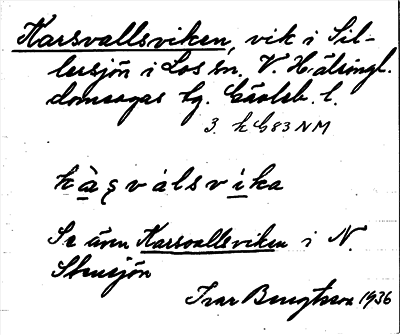 Karsvallsviken, vik i Sil-
lersjön i Los sn. V. Hälsingl.
domsagas tg. Gävleb. l.
3. h G83 NM
kàşválsvika
Se även Karsvallsviken i N.
Stensjön
Ivar Bengtsson 1936